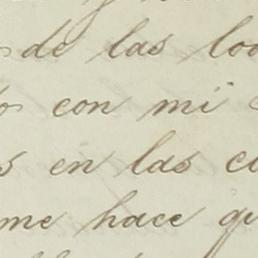 de las loo
con mi
en las co
me hace qu